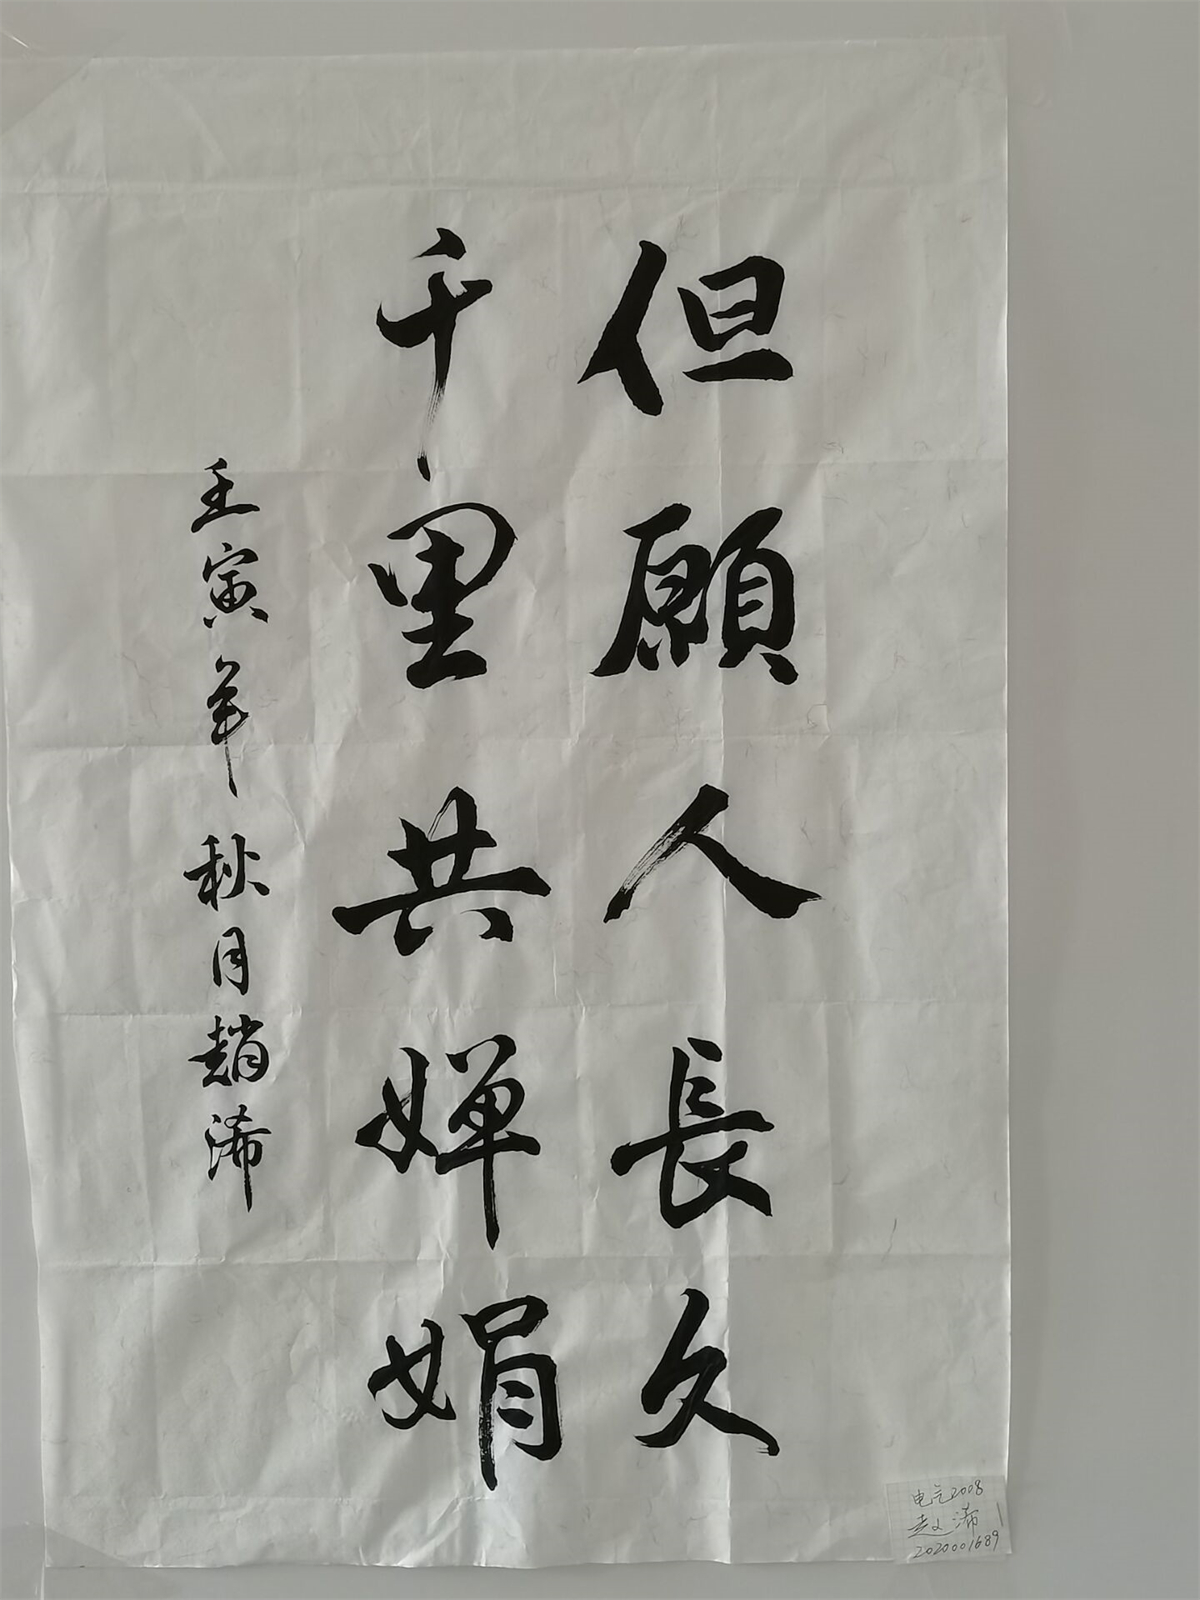 但願人長久
千里共嬋娟
壬寅年秋月趙浠
电气2008
赵浠
2020001689